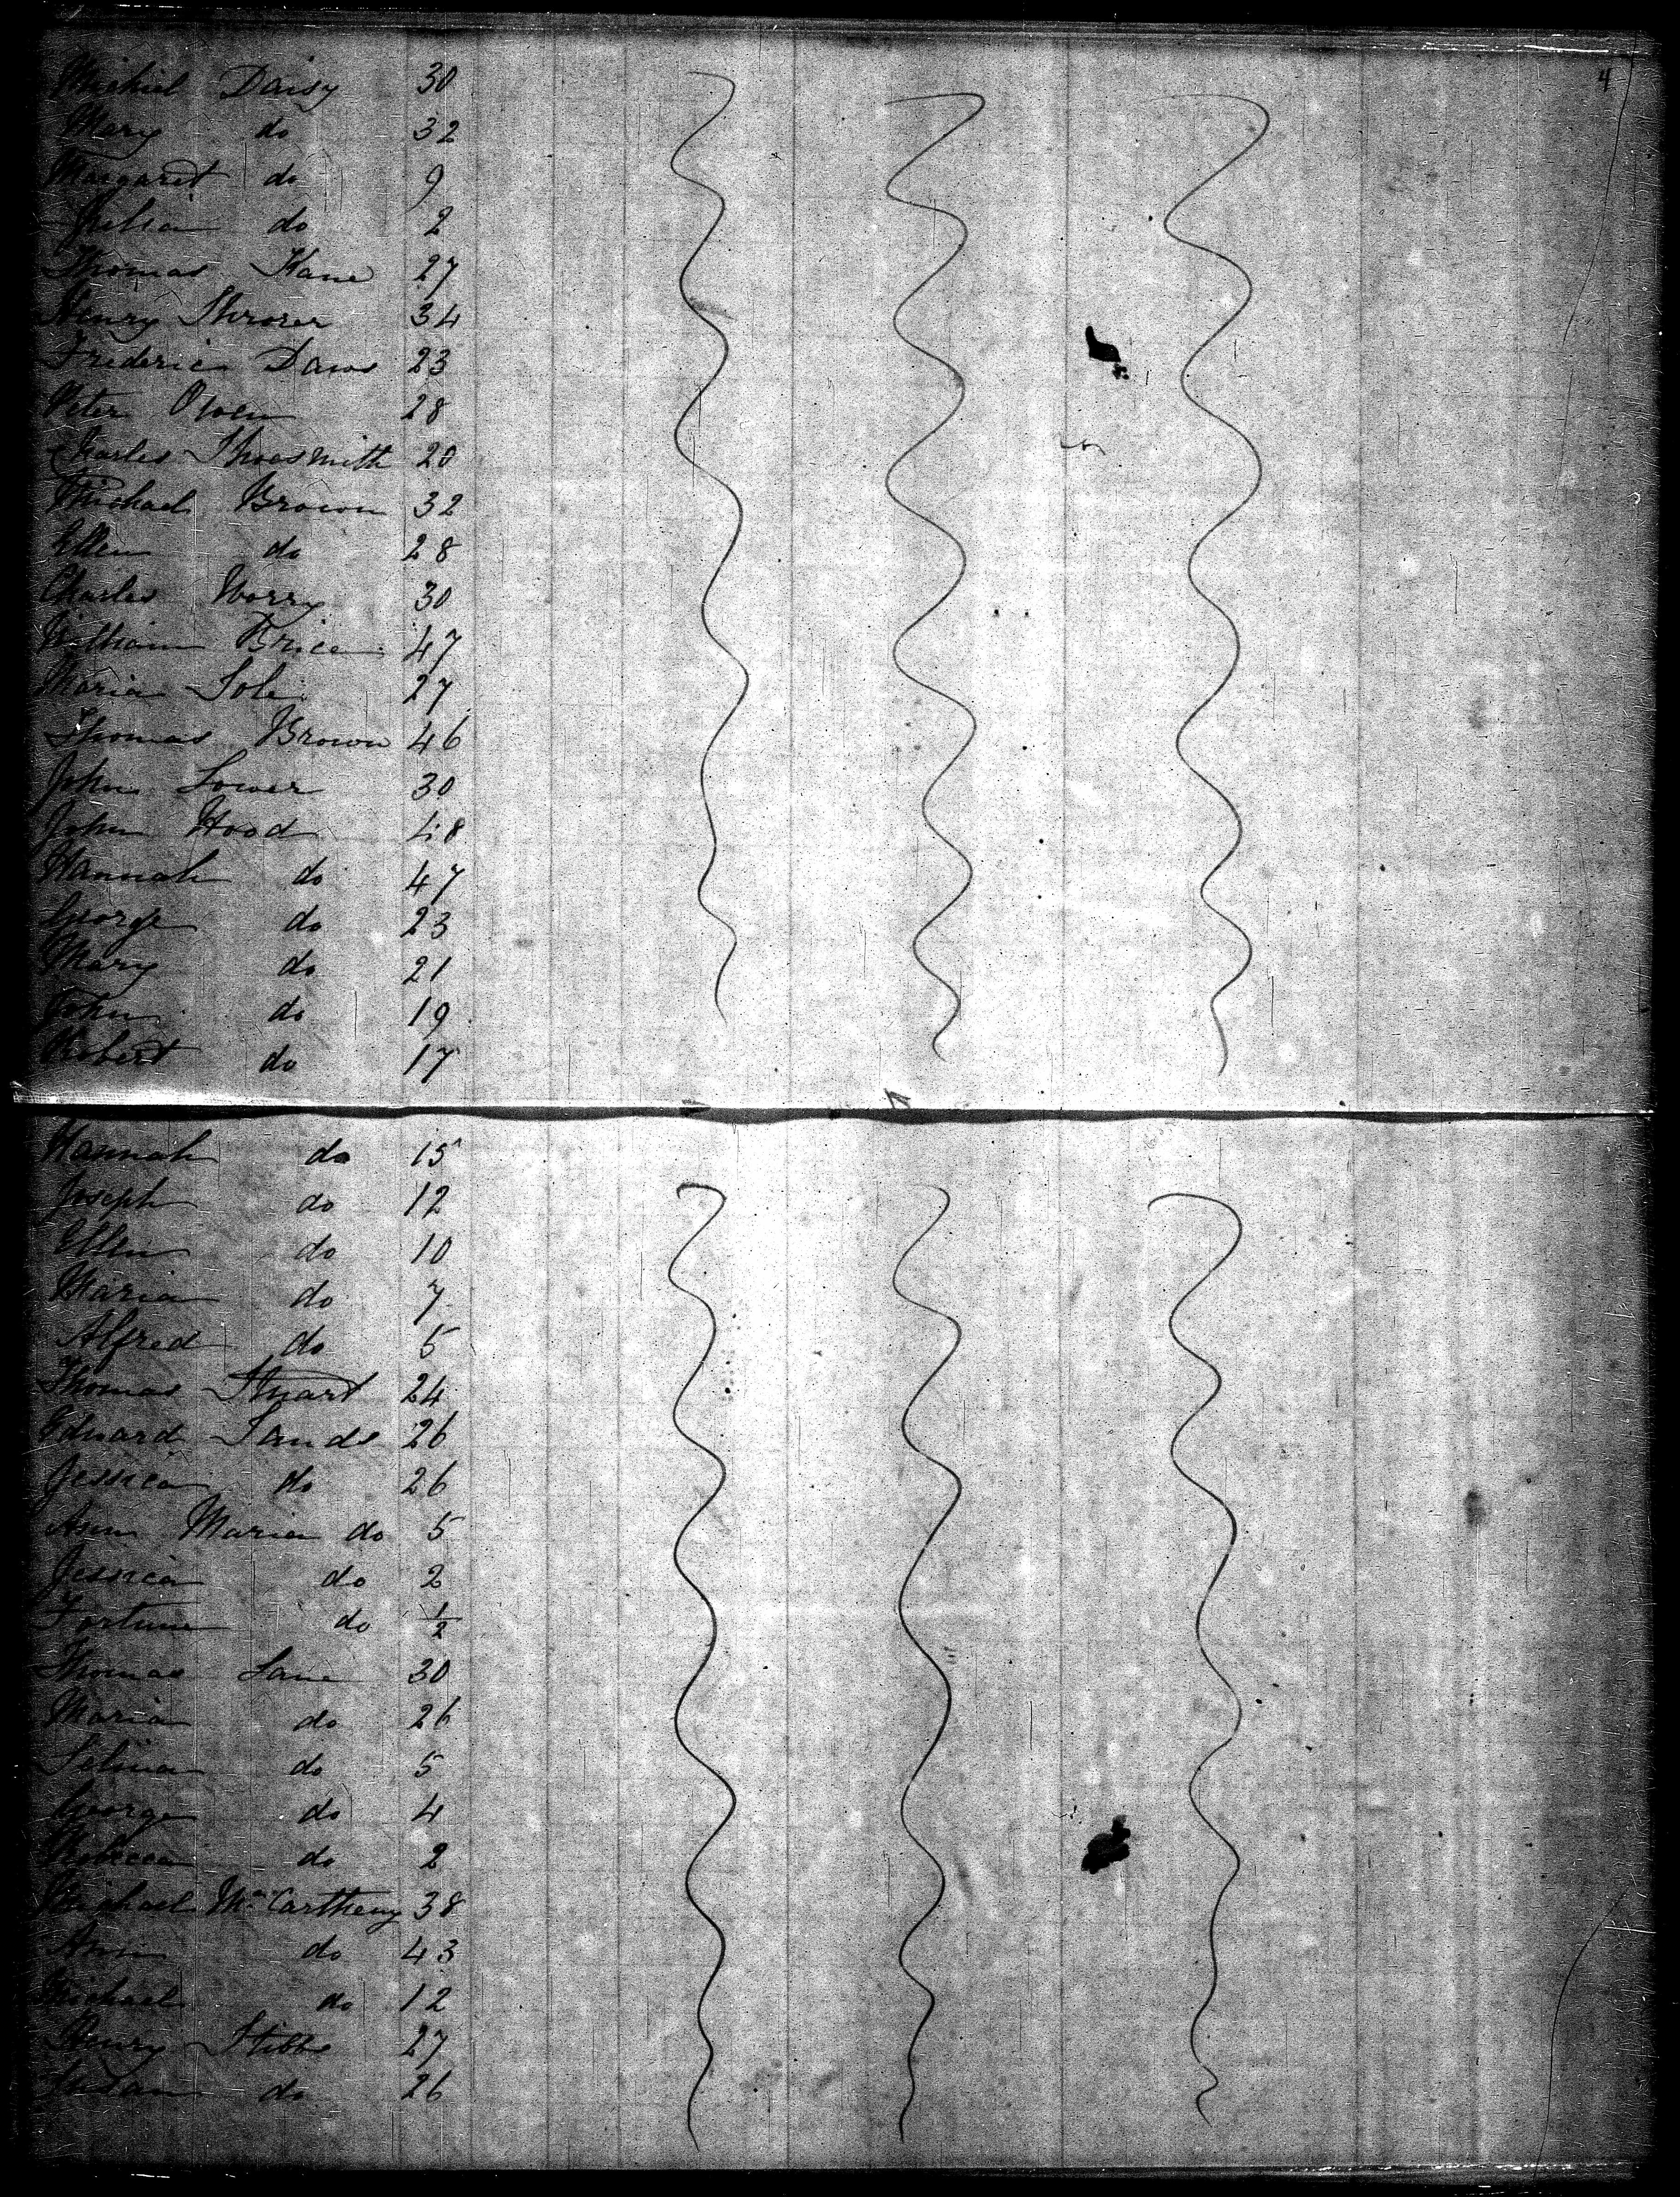 4
Michiel Daisy 30
Mary do 32
Margaret do 9
Julia do 2
Thomas Kane 27
Henry 34
Frederic Daws 23
Peter Owen 28
Charles Shoosmith 20
Michael Brown 32
Ellen do 28
Charles Worry 30
William Brice 47
Maria Sole 27
Thomas Brown 46
John Lower 30
John Hood 48
Hannah do 47
George do 23
Mary do 21
John do 19
Robert do 17
Hannah do 15
Joseph do 12
Ellin do 10
Maria do 7
Alfred do 5
Thomas Stuart 24
Edward Sands 26
Jessica do 26
Ann Maria do 5
Jessica do 2
Fortune do 1/2
Thomas Lane 30
Maria do 26
Selina do 5
George do 4
Rebecca do 2
Michael Mc Cartheny 38
Ann do 43
Michael do 12
Henry Stibbs 27
Susan do 26